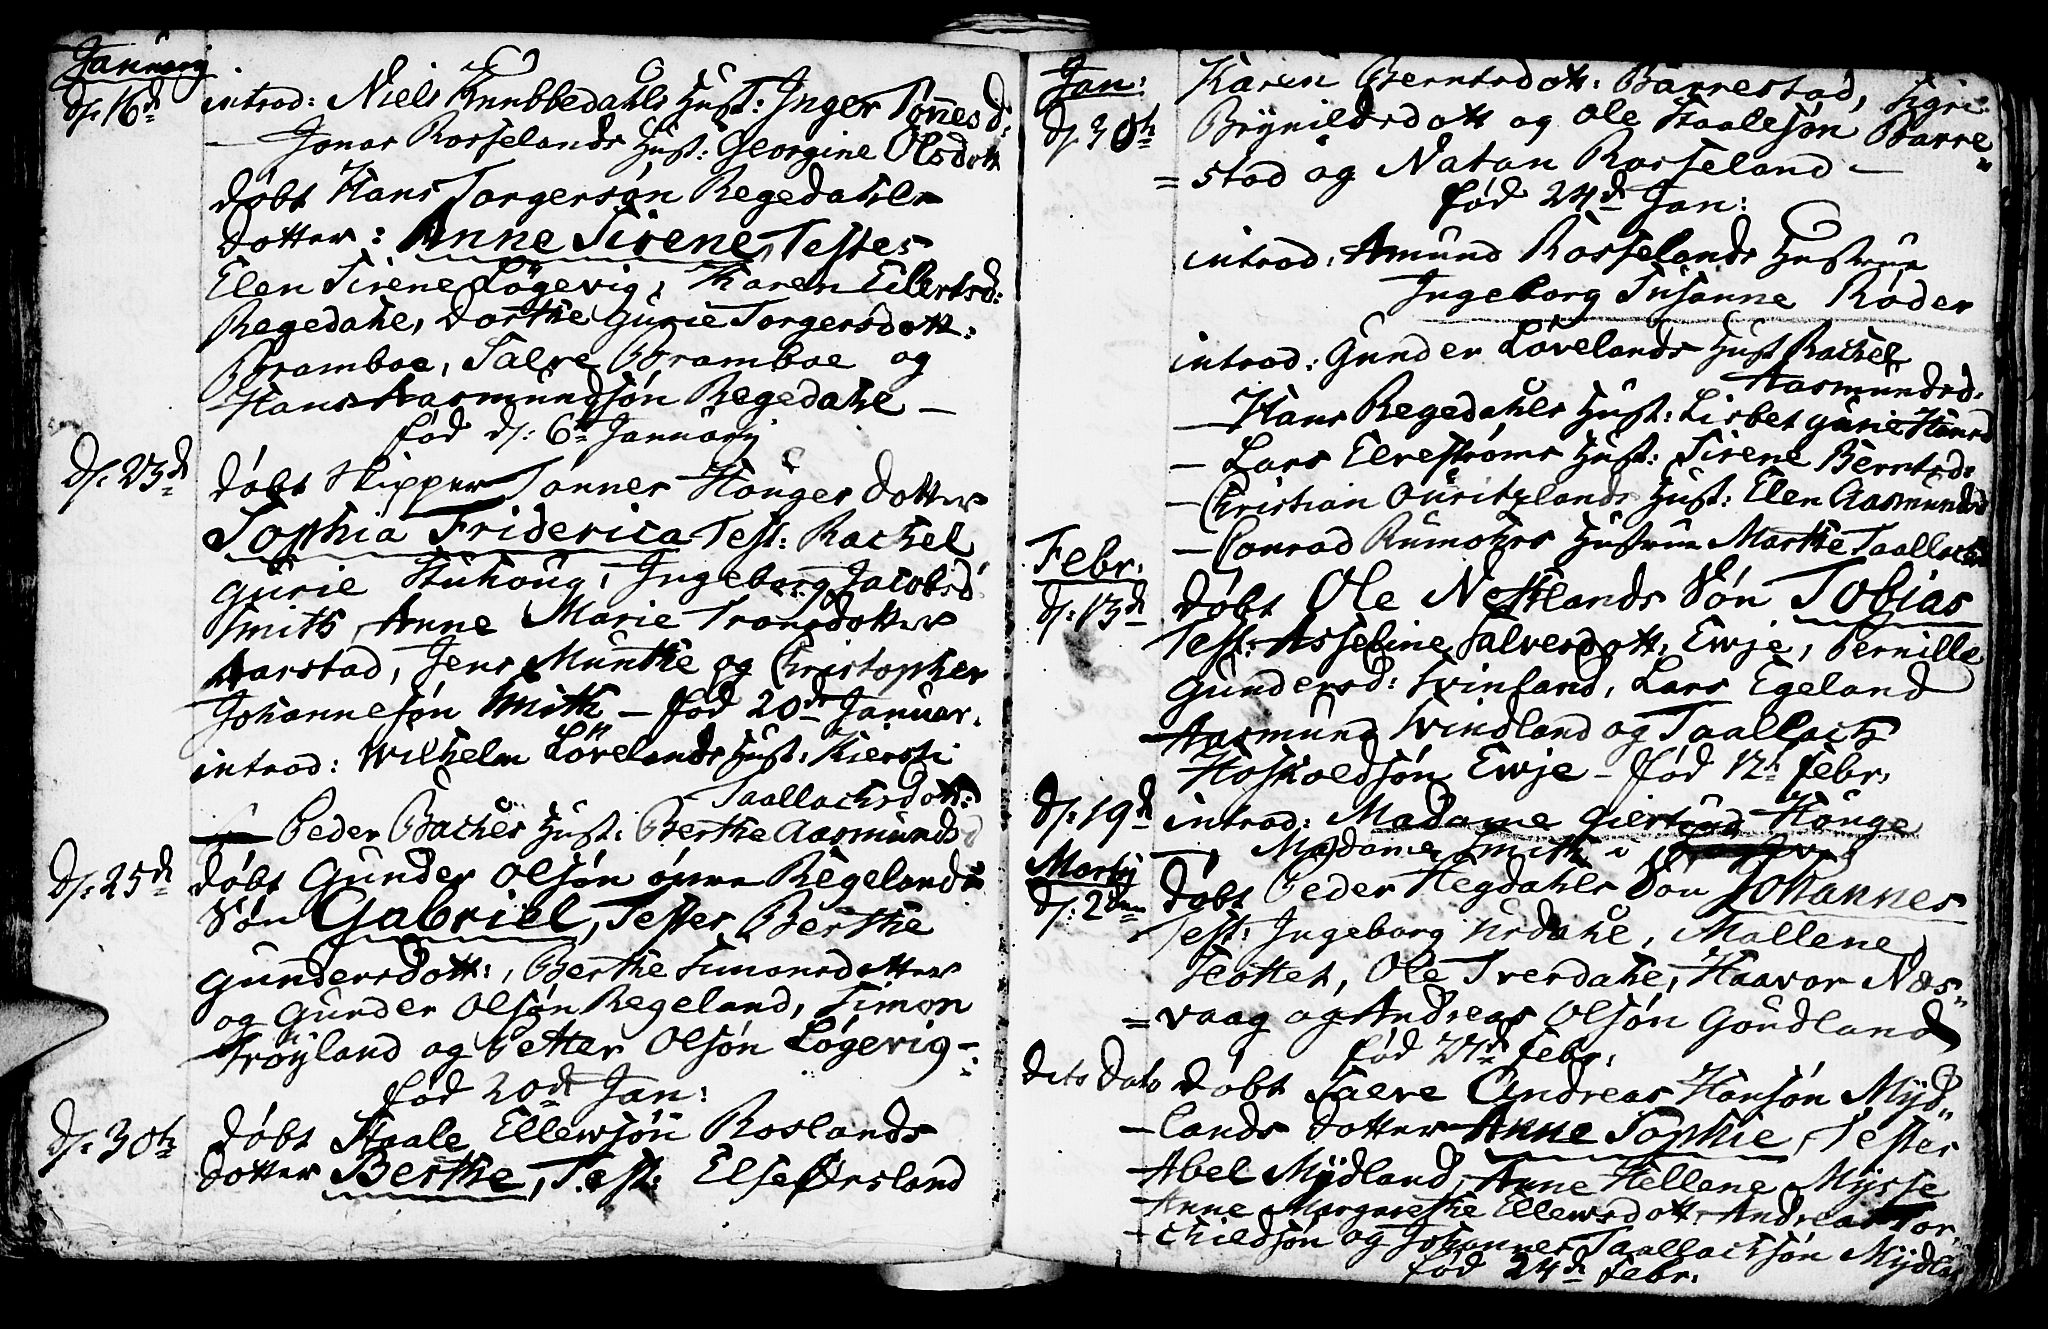 Januarij
d/: 16d intrad: Niels Knubbedahls Hust: Inger Tønnesd:
— Jonas Rosselands Hust: Georgine Olsdott
døbt Hans Torgersøn Regedahls
dotter: Anne Sirene, Testes
Elen Sirene Løgevig, Karen Eilertsd:
Regedahl, Dorthe Gurie Torgersdott:
Bramboe, Salve Bramboe og
Hans Aasmundsøn Regedahl —
fød d/: 6t Januarij
d/: 23d døbt Skipper Tønnes Houges dotter
Sophia Friderica Test: Rachel
Gurie Stuhoug, Ingeborg Jacobsd
Smith, Anne Marie Tronsdotter
Aarstad, Jens Munthe og Christopher
Johannesøn Smith — fød 20de Januar.
intrad: Wilhelm Løvelands Hust: Kiersti
Taallachsdott:
— Peder Baches Hust: Berthe Aasmundsd
d/: 25d døbt Gunder Olsøn øvre Regelands
Søn Gabriel, Testes Berthe
Gundersdott:, Berthe Simonsdotter
og Gunder Olsøn Regeland, Simon
Frøyland og Petter Olsøn Løgevig —
fød 20de Jan:
d/: 30te døbt Staale Ellewsøn Roslands
dotter Berthe, Test: Else Ørsland
Jan:
d/: 30te Karen Berntsdott: Barrestad, Sigri
Brynildsdott og Ole Staalesøn Barre=
=stad og Natan Rosseland —
fød 24d Jan:
intrad: Amund Rosselands Hustrue
Ingeborg Susanne Røder
intrad: Gunder Løvelands Hust Rachel
Aasmundsd.
— Hans Regedahls Hust: Lisbet Gurie Hansd
— Lars Elvestrøms Hust: Sirene Berntsd:
— Christian Ouritzlands Hust: Elen Aasmundsd
— Conrad Rumohrs Hustrue Marthe Taallachsd
Febr.
d/: 13d døbt Ole Netlands Søn Tobias
Test: Asseline Salvesdott. Ewje, Pernille
Gundersd: Svinland, Lars Egeland
Aasmund Svindland og Taallach
Hoskoldsøn Ewje — fød 12t Febr.
d/: 19d intrad: Madame Giertrud Houge
— Madame Smith i
Martij
d/: 2den døbt Peder Hegdahls Søn Johannes
Test: Ingeborg Urdahl, Mallene
Flottet, Ole Tverdahl, Haavor Næs=
=vaag og Andreas Olsøn Goudland
fød 21d Febr.
dito dato døbt Salve Andreas Hansøn Myd=
—lands dotter Anne Sophie, Testes
Abel Mydland, Anne Hellene Mysse
Anne Margarethe Ellewsdott. Andreas Tor=
—chieldsøn og Johannes Taallachsøn Mydla
fød 24d Febr.